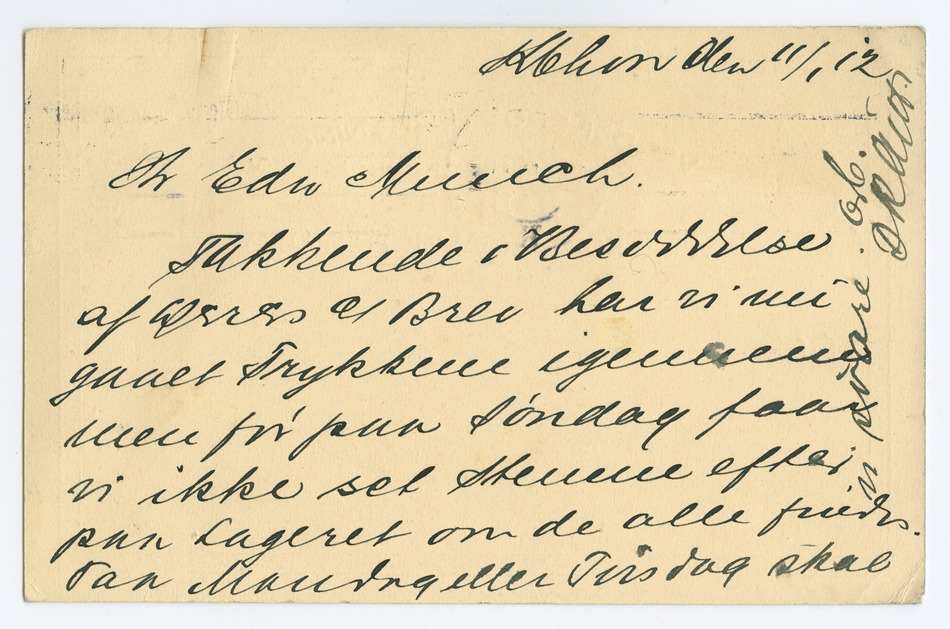 Kbhvn den 11/1 12
Hr Edv Munch.
Takkende i Besiddelse
af Deres Brev har vi nu
gaaet Trykkene igennem
men før paa Søndag faar
vi ikke set Stenene efter
paa Lageret om de alle findes.
Saa Mandag eller Tirsdag skal
vi svare.